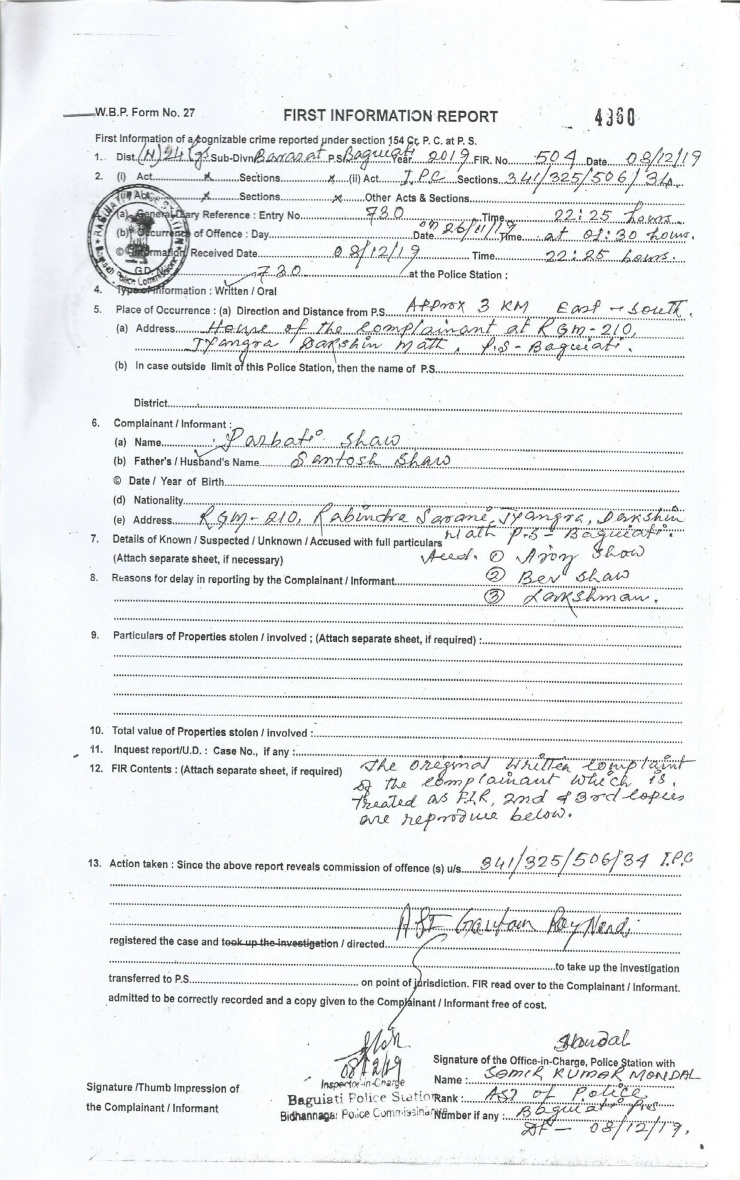 W.B.P. Form No. 27
FIRST INFORMATION REPORT
4360
First Information of a cognizable crime reported under section 154 Cr. P. C. at P. S.
1. Dist. (N) 24 Pgs Sub-Divn Barasat P.S Baguiati Year 2019 FIR. No. 504 Date 08/12/19
2. (i) Act x Sections x (ii) Act I.P.C Sections 341/325/506/34
Act x Sections x Other Acts & Sections
(a) General Diary Reference : Entry No. 730 Time 22:25 hours.
(b) Occurrence of Offence : Day Date 26/11/19 Time at 01:30 hours.
© Information Received Date 08/12/19 Time 22:25 hours.
G.D. 730 at the Police Station :
4. Type of Information : Written / Oral
5. Place of Occurrence : (a) Direction and Distance from P.S. Approx 3 KM East - South.
(a) Address House of the complainant at RGM-210,
Jyangra Dakshin Math. P.S- Baguiati.
(b) In case outside limit of this Police Station, then the name of P.S.
District
6. Complainant / Informant :
(a) Name : Parbati Shaw
(b) Father's / Husband's Name Santosh Shaw
© Date / Year of Birth
(d) Nationality
(e) Address RGM-210, Rabindra Sarani, Jyangra, Dakshin
Math P.S- Baguiati.
7. Details of Known / Suspected / Unknown / Accused with full particulars
(Attach separate sheet, if necessary) Accd. ① Ajoy Shaw
8. Reasons for delay in reporting by the Complainant / Informant ② Ben Shaw
③ Lakshman.
9. Particulars of Properties stolen / involved ; (Attach separate sheet, if required) :
10. Total value of Properties stolen / involved :
11. Inquest report/U.D. : Case No., if any :
12. FIR Contents : (Attach separate sheet, if required) The Original Written complaint
of the complainant which is
treated as FIR, 2nd & 3rd copies
are reproduce below.
13. Action taken : Since the above report reveals commission of offence (s) u/s. 341/325/506/34 I.P.C
ASI Gautam Roy Nandi
registered the case and took up the investigation / directed
to take up the investigation
transferred to P.S. on point of jurisdiction. FIR read over to the Complainant / Informant.
admitted to be correctly recorded and a copy given to the Complainant / Informant free of cost.
08/12/19
Inspector-in-Charge
Baguiati Police Station
Bidhannagar Police Commissionerate
SMondal
Signature of the Office-in-Charge, Police Station with
Name : SAMIR KUMAR MONDAL
Rank : ASI of Police
Number if any : Baguiati P.S
DT - 08/12/19.
Signature /Thumb Impression of
the Complainant / Informant